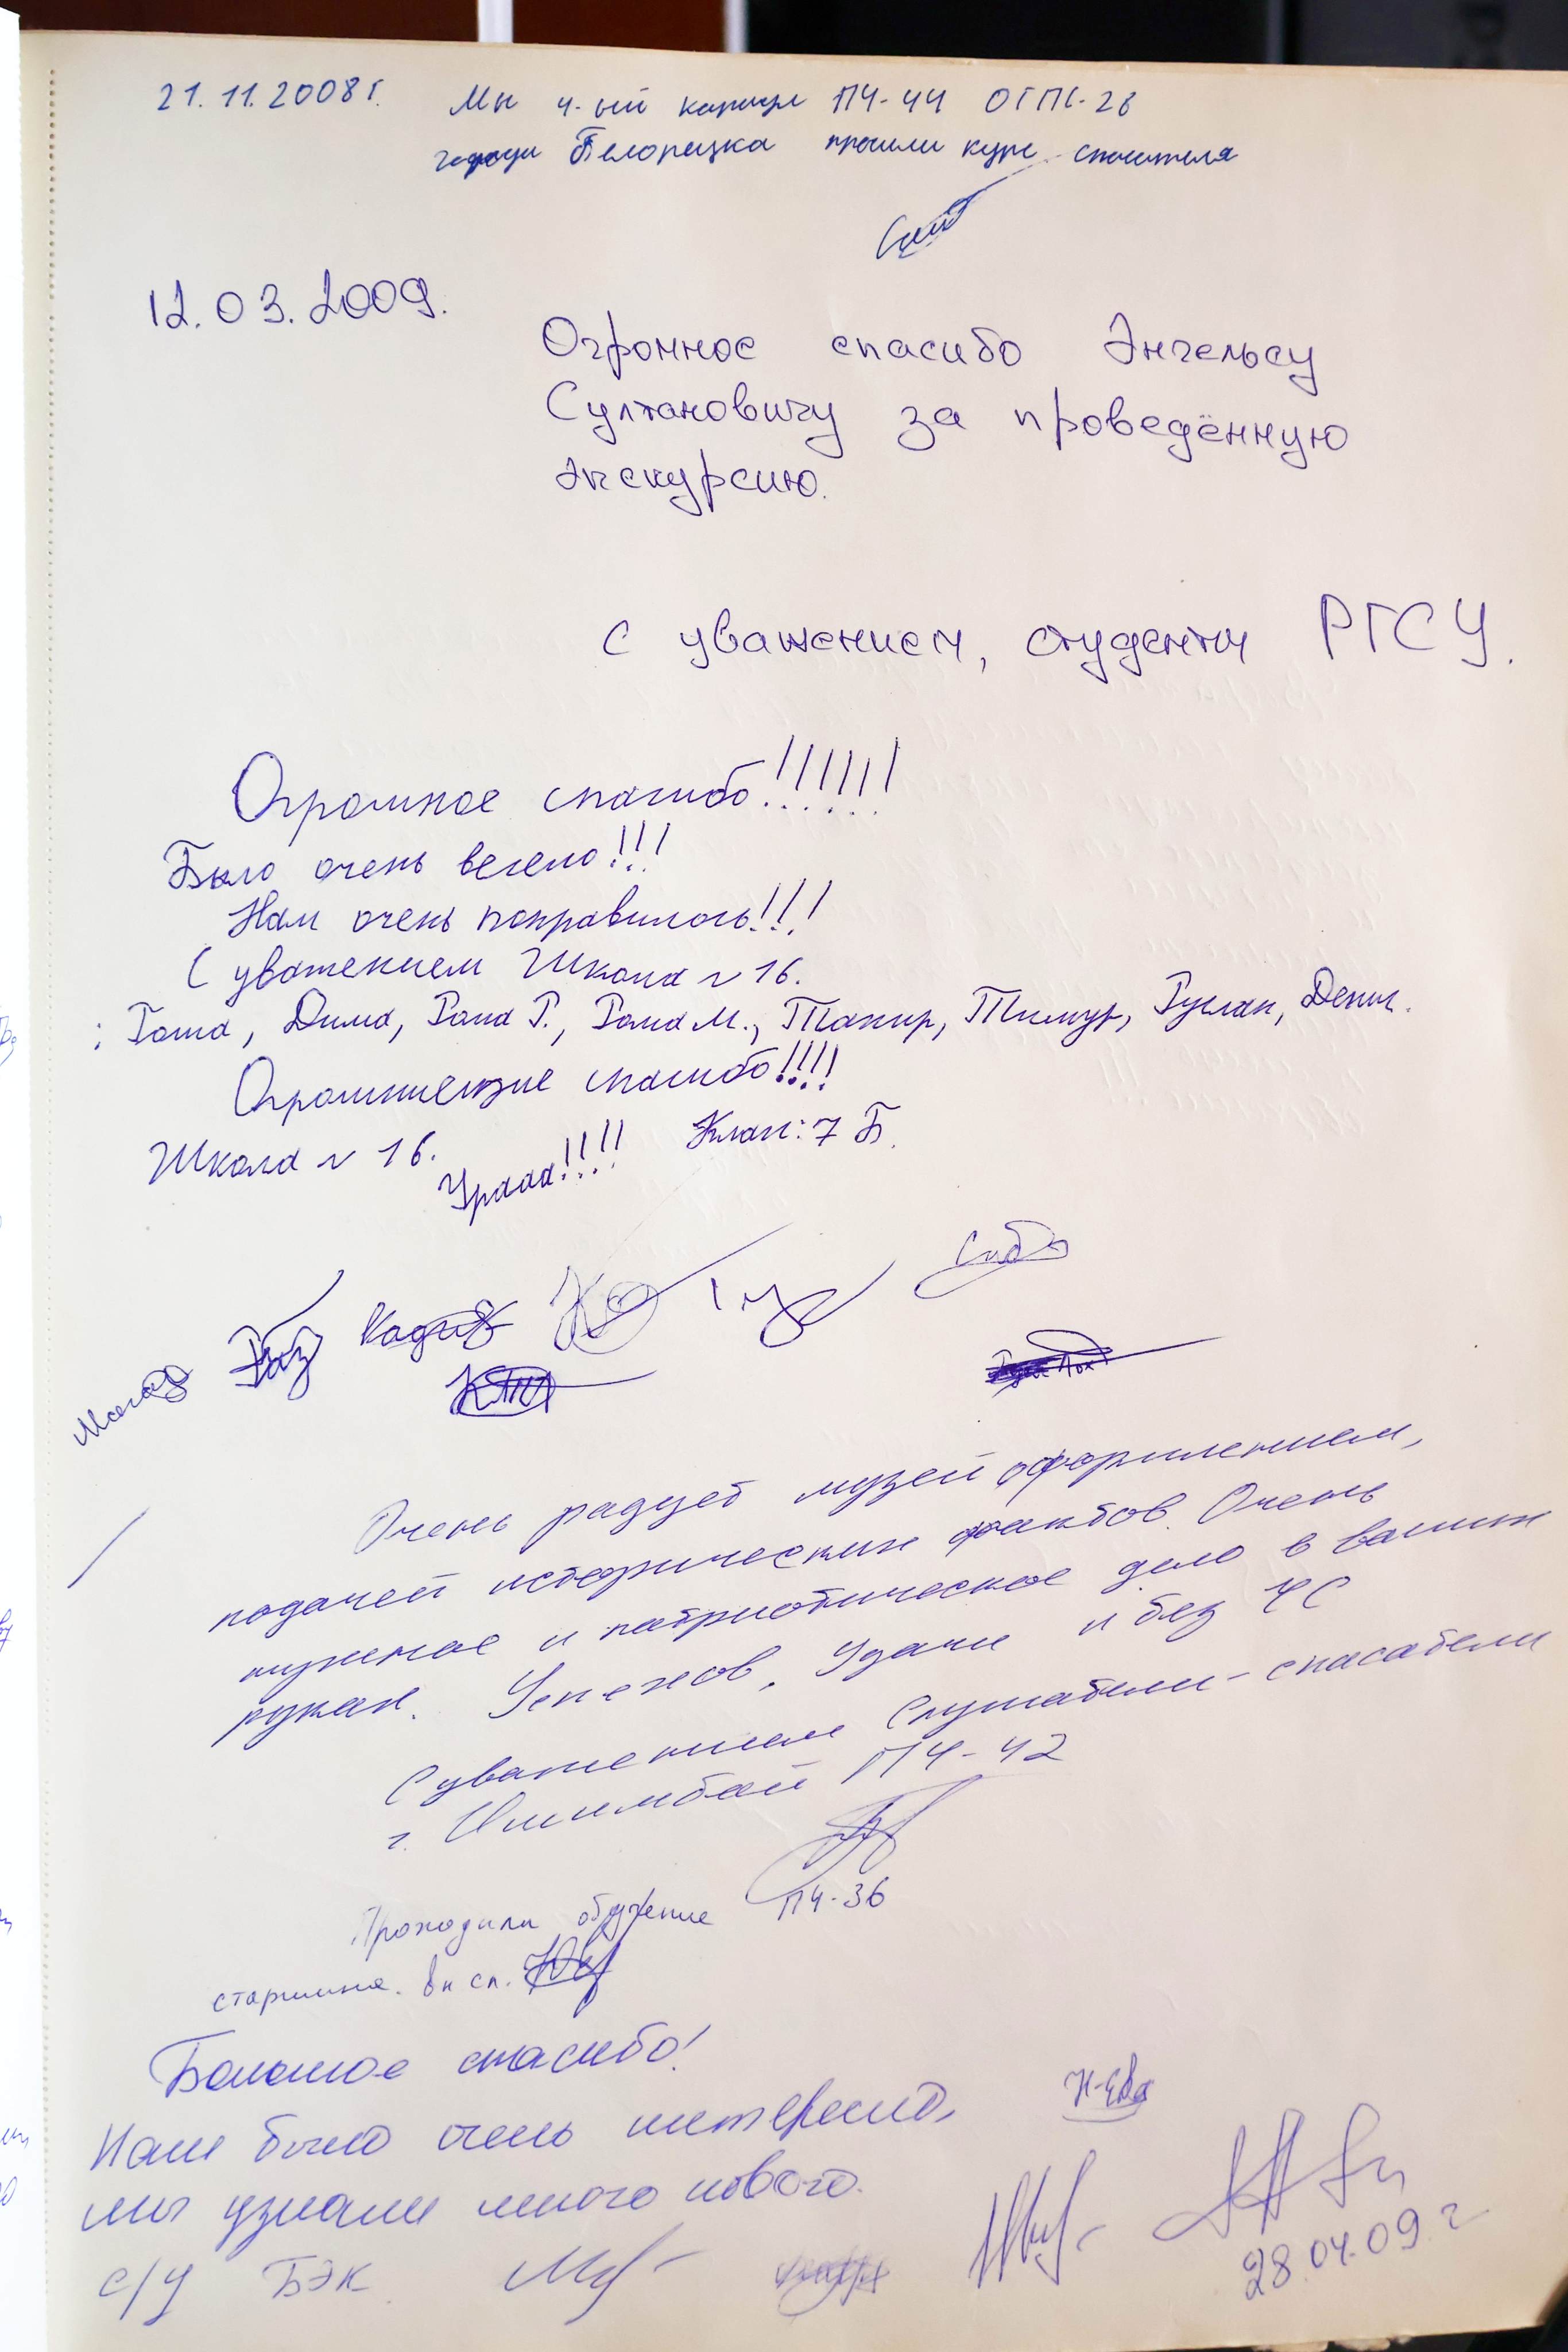 21.11.2008г. Мы 4-ый караул ПЧ-44 ОГПС-26
города Белорецка прошли курс спасителя
12.03.2009.
Огромное спасибо Энгельсу
Султановичу за проведённую
экскурсию.
С уважением, студенты РГСУ.
Огромное спасибо!!!!!!
Было очень весело!!!
Нам очень понравилось!!!
С уважением Школа №16.
: Гоша, Дима, Рома Р., Рома М., Тагир, Тимур, Руслан, Денис.
Огромнейшие спасибо!!!!
Школа №16. Урааа!!!! Класс: 7 Б.
Очень радует музей оформлением,
подачей исторических фактов. Очень
нужное и патриотическое дело в ваших
руках. Успехов, Удачи и без ЧС
С уважением Слушатели-спасатели
г. Ишимбай ПЧ-42
Проходили обучение ПЧ-36
старшина вн сл.
Большое спасибо!
Нам было очень интересно,
мы узнали много нового.
с/у БЭК
28.04.09 г